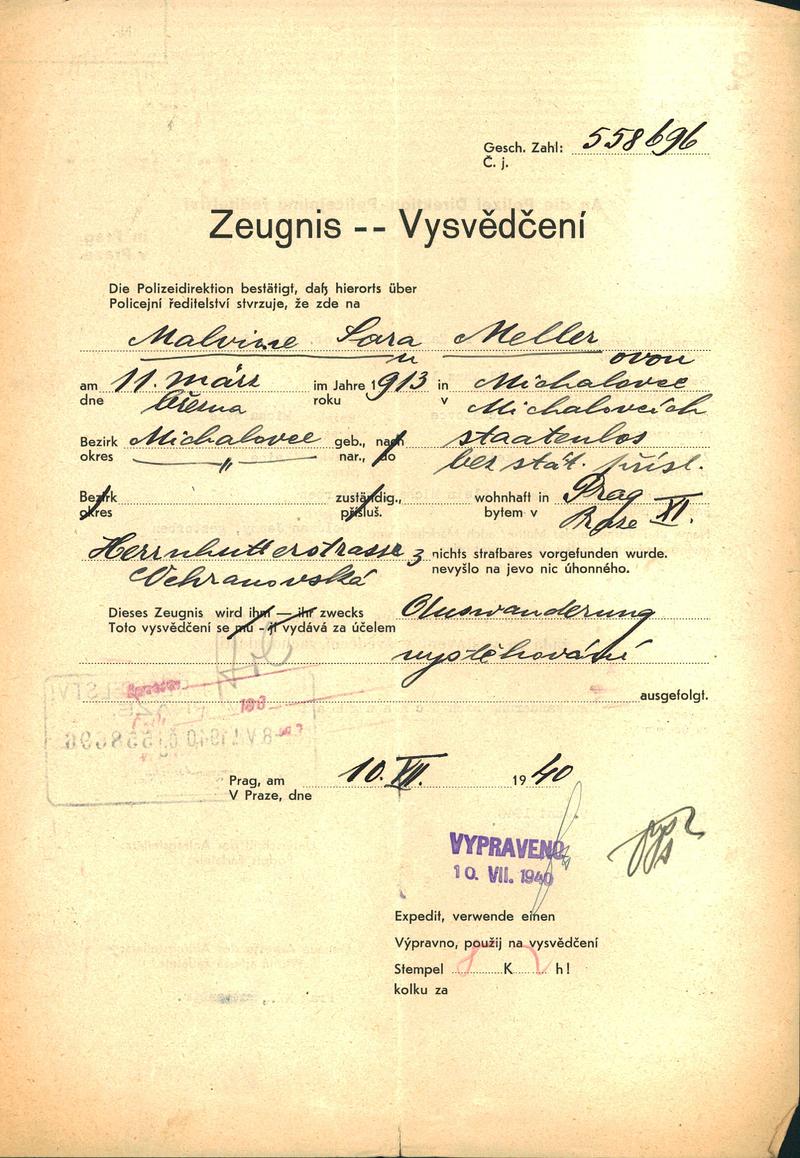 Gesch. Zahl: 558696
Č. j.
Zeugnis -- Vysvědčení
Die Polizeidirektion bestätigt, daß hierorts über
Policejní ředitelství stvrzuje, že zde na
Malvine Sara Meller
ovou
am 11. März im Jahre 1913 in Michalovce
dne března roku v Michalovcích
Bezirk Michalovce geb., nach staatenlos
okres " nar., do bez stát. přísl.
Bezirk zuständig., wohnhaft in Prag XI.
okres přísluš. bytem v Praze
Herrnhutterstrasse 3 nichts strafbares vorgefunden wurde.
Ochranovská nevyšlo na jevo nic úhonného.
Dieses Zeugnis wird ihm — ihr zwecks Auswanderung
Toto vysvědčení se mu - jí vydává za účelem
vystěhování
ausgefolgt.
8 VII 1940 558696
Prag, am 10. VII. 1940
V Praze, dne
VYPRAVENO
10. VII. 1940
Expedit, verwende einen
Výpravno, použij na vysvědčení
Stempel 8 K h!
kolku za